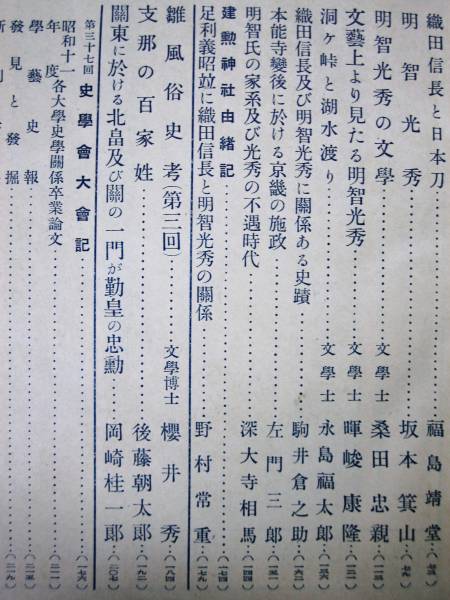 織田信長と日本刀 福島靖堂…(七三)
明智光秀 坂本箕山…(七九)
明智光秀の文學 文學士 桑田忠親…(一一三)
文藝上より見たる明智光秀 文學士 暉峻康隆…(一二一)
洞ヶ峠と湖水渡り 文學士 永島福太郎…(一三六)
織田信長及び明智光秀に關係ある史蹟 駒井倉之助…(一六二)
本能寺變後に於ける京畿の施政 左門三郎…(一四四)
明智氏の家系及び光秀の不遇時代 深大寺相馬…(一四四)
建勲神社由緒記…(一七四)
足利義昭竝に織田信長と明智光秀の關係 野村常重…(一七九)
雛風俗史考(第三回) 文學博士 櫻井秀…(一八四)
支那の百家姓 後藤朝太郎…(一九二)
關東に於ける北畠及び關の一門が勤皇の忠勳 岡崎桂一郎…(二〇七)
第三十七回 史學會大會記…(一七六)
昭和十一年度 各大學史學關係卒業論文…(二一一)
學藝史報…(二一五)
發見と發掘…(二一九)
新刊